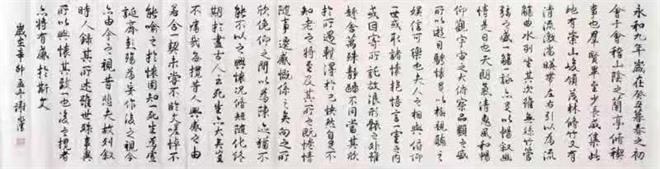 永和九年歲在癸丑暮春之初
會于會稽山陰之蘭亭脩稧
事也羣賢畢至少長咸集此
地有崇山峻領茂林脩竹又有
清流激湍暎帶左右引以為流
觴曲水列坐其次雖無絲竹管
弦之盛一觴一詠亦足以暢叙幽
情是日也天朗氣清惠風和暢
仰觀宇宙之大俯察品類之盛
所以遊目騁懷足以極視聽之
娛信可樂也夫人之相與俯仰
一世或取諸懷抱悟言一室之內
或因寄所託放浪形骸之外雖
趣舍萬殊靜躁不同當其欣
於所遇暫得於己怏然自足不
知老之將至及其所之既惓情
隨事遷感慨係之矣向之所
欣俛仰之間以為陳迹猶不
能不以之興懷況脩短隨化終
期於盡古人云死生亦大矣豈
不痛哉每攬昔人興感之由
若合一契未嘗不臨文嗟悼不
能喻之於懷固知一死生為虛
誕齊彭殤為妄作後之視今
亦由今之視昔悲夫故列叙
時人錄其所述雖世殊事異
所以興懷其致一也後之攬者
亦將有感於斯文
歲在辛卯孟